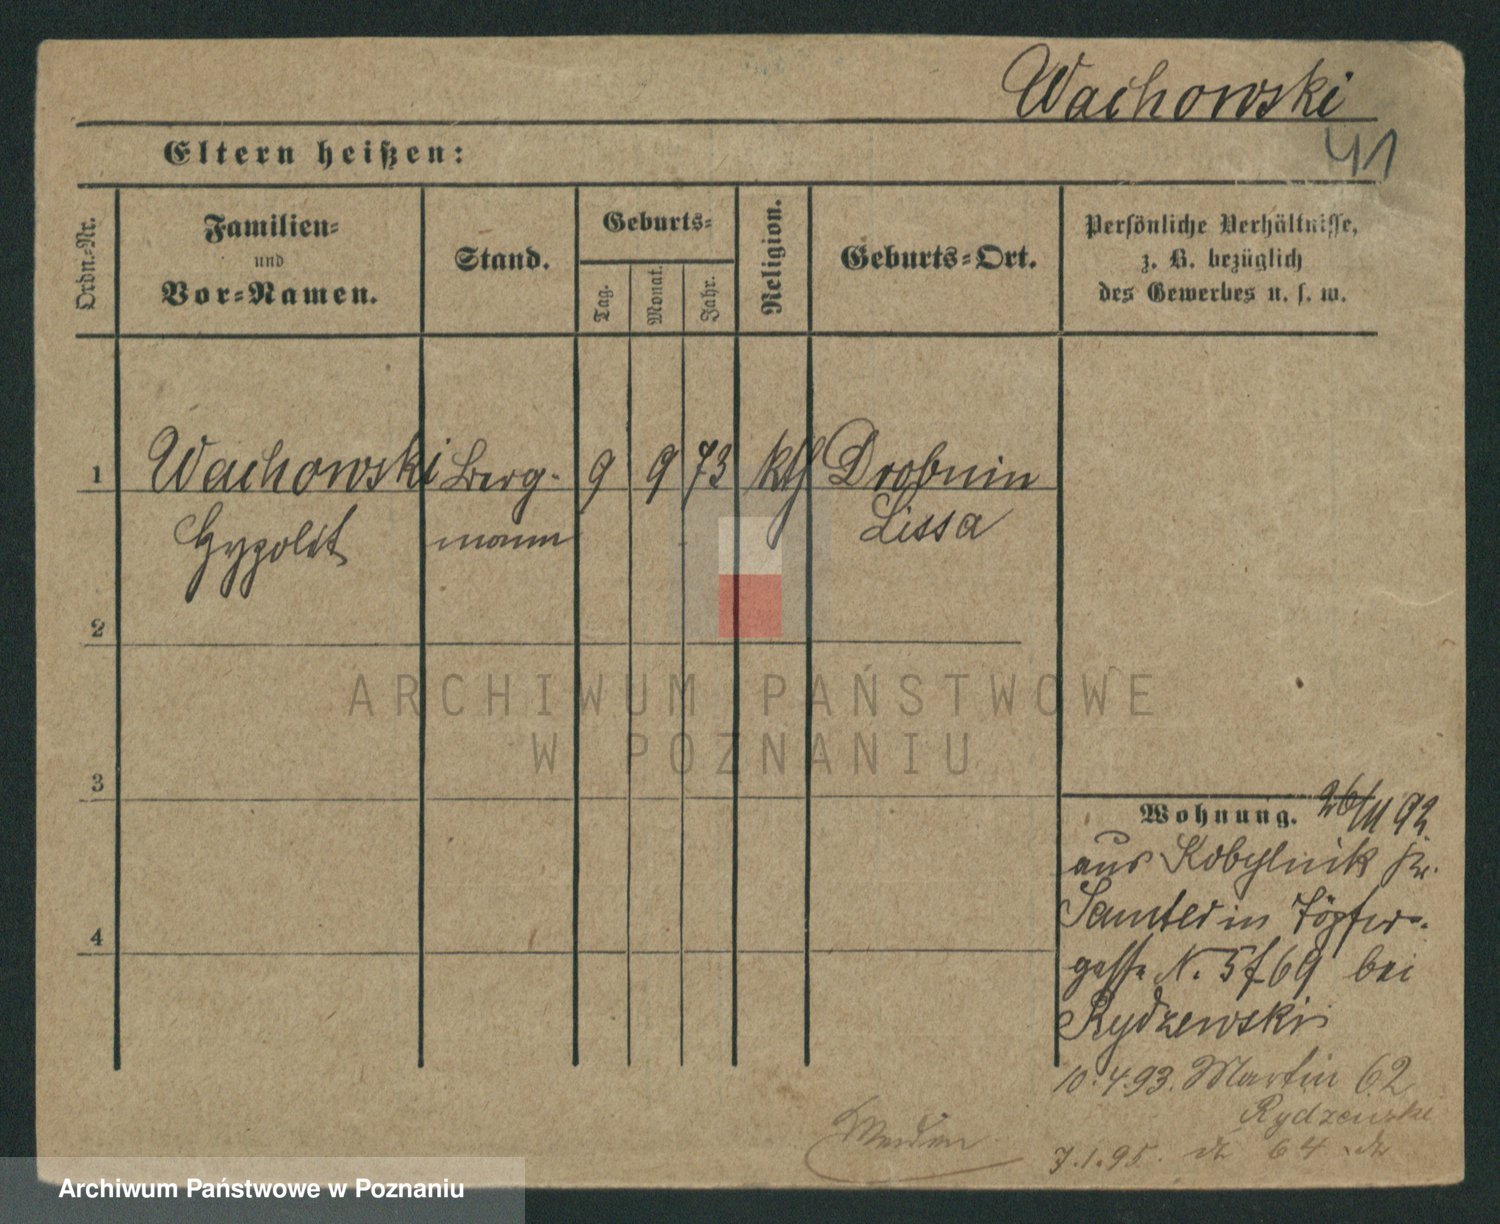 Wachowski
41
Eltern heißen:
Ordn.-Nr.
Familien-
und
Vor-Namen.
Stand.
Geburts-
Tag.
Monat.
Jahr.
Religion.
Geburts-Ort.
Persönliche Verhältnisse,
z. B. bezüglich
des Gewerbes u. s. w.
1 Wachowski Berg- 9 9 73 kth Drobnin
Hypolit mann Lissa
2
3
4
ARCHIWUM PAŃSTWOWE
W POZNANIU
Wohnung. 26/11 92
aus Kobylnik Kr.
Samter in Töpfer-
gasse N. 5 f 69 bei
Rydzewski
10.4.93. Martin 62
Rydzewski
7.1.95. 64
Archiwum Państwowe w Poznaniu